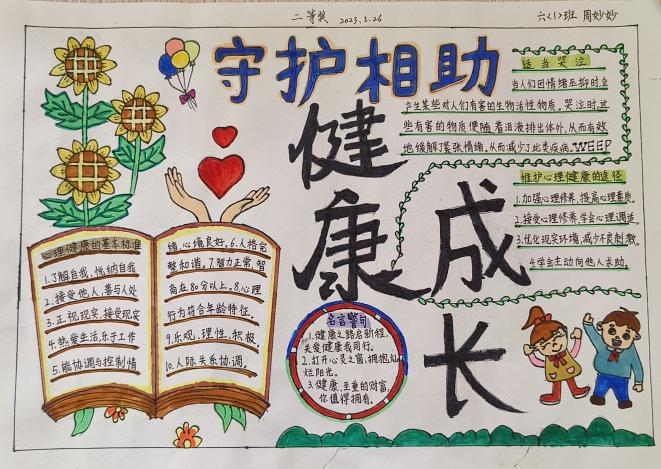 二等奖 2023.5.26
六(1)班 周妙妙
守护相助
健康
成长
适当哭泣
当人们因情绪压抑时,会
产生某些对人们有害的生物活性物质。哭泣时,这
些有害的物质便随着泪液排出体外,从而有效
地缓解了紧张情绪,从而减少了此类疾病。WEEP
维护心理健康的途径
1.加强心理修养,提高心理素质。
2.接受心理修养,学会心理调适
3.优化现实环境,减少不良刺激。
4.学会主动向他人求助。
心理健康的基本标准
1.了解自我,悦纳自我
2.接受他人,善与人处
3.正视现实,接受现实
4.热爱生活,乐于工作
5.能协调与控制情
绪,心境良好。6.人格完
整和谐。7.智力正常,智
商在80分以上。8.心理
行为符合年龄特征。
9.乐观、理性、积极
10.人际关系协调。
名言警句
1.健康之路启新程,
关爱健康我同行。
2.打开心灵之窗,拥抱灿
烂阳光。
3.健康,至重的财富,
你值得拥有。